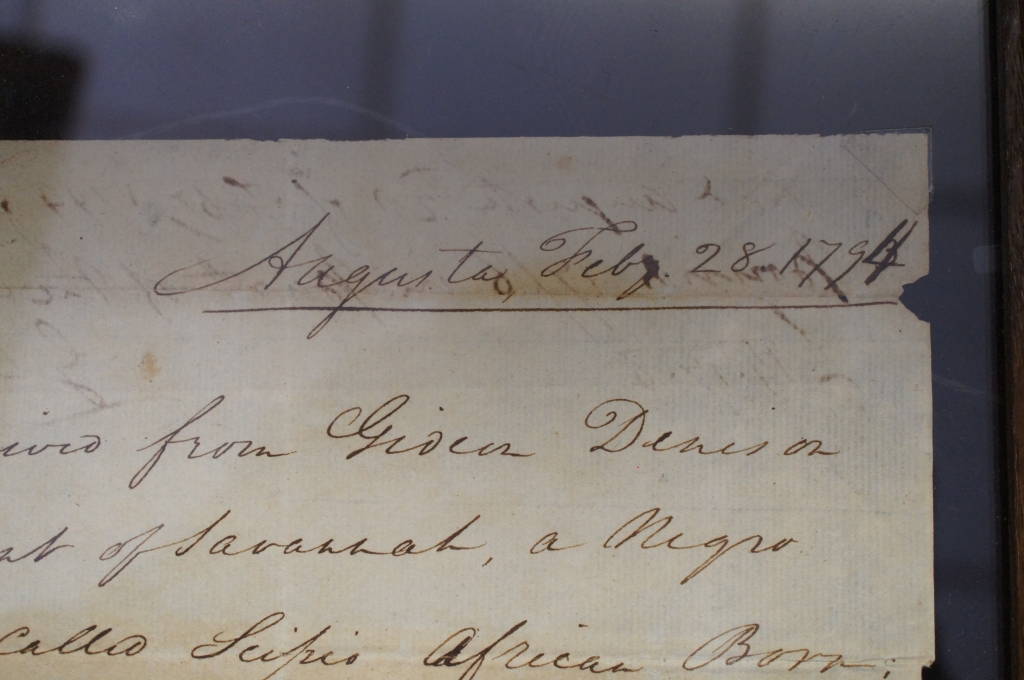 Augusta, Feby. 28 1794
from Gideon Denison
of Savannah, a Negro
Called Scipio African Born,